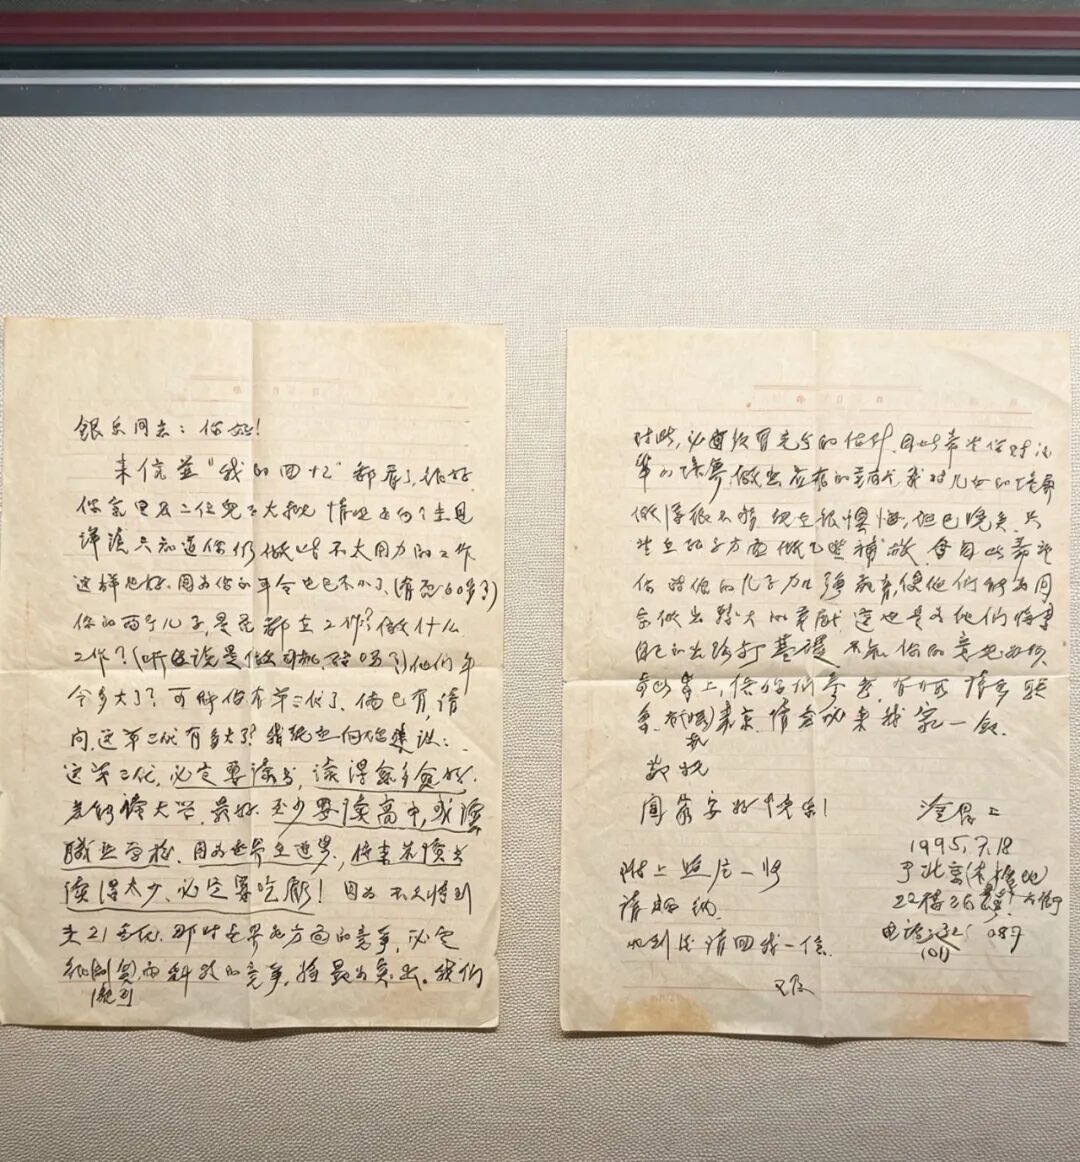 银乐同志：你好！
来信并“我的回忆”都看了，很好
你家里及二位兄大概情况
详谈，只知道你们做些不太用力的工作
这样也好，因为你的年令也已不小了，(有否60岁了)
你的两个儿子，是否都在工作？做什么
工作？(听说是做司机，对吗？)他们年
令多大了？可能你有第三代了，倘已有，请
问，这第三代有多大了？我现在向你建议：
这第三代，必定要读书，读得愈多愈好。
能够读大学，最好，至少要读高中，或读
职业学校，因为世界在进步，将来若读书
读得太少，必定要吃亏！因为不久将到
去21世纪，那时世界各方面的竞争，必定
很剧烈，而科技的竞争，将最为突出。我们
对此，必须预有充分的估计，因此希望你对后
辈的培养，做出应有的贡献，我对儿女的培养
做得很不够，现在很懊悔，但已晚矣，只
能在孙子方面做些补救，因此希望
你对你的儿子加强教育，使他们能为国
家做出较大的贡献，这也是为他们将来
自己的出路打基础，不知你的意见如何
写此寄上，供你们参考，有可能请多联
系，有机会来京，请全功来我家一叙。
敬祝
阖家安好快乐！
1995.7.18
于北京
附上照片一张
请收纳。
收到后请回我一信
又及
22楼
电话：
(01)